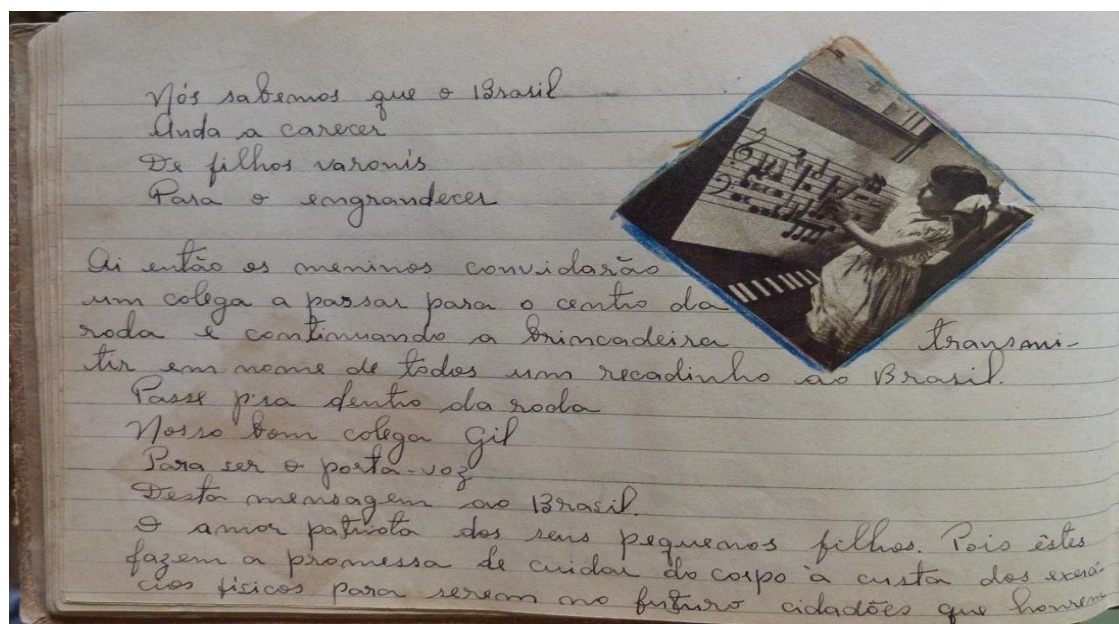 Nós sabemos que o Brasil
Anda a carecer
De filhos varonís
Para o engrandecer
Ai então os meninos convidarão
um colega a passar para o centro da
roda e continuando a brincadeira transmi-
tir em nome de todos um recadinho ao Brasil.
Passe p'ra dentro da roda
Nosso bom colega Gil
Para ser o porta-voz
Desta mensagem ao Brasil.
O amor patriota dos seus pequenos filhos. Pois êstes
fazem a promessa de cuidar do corpo à custa dos exercí-
cios físicos para serem no futuro cidadões que honrem